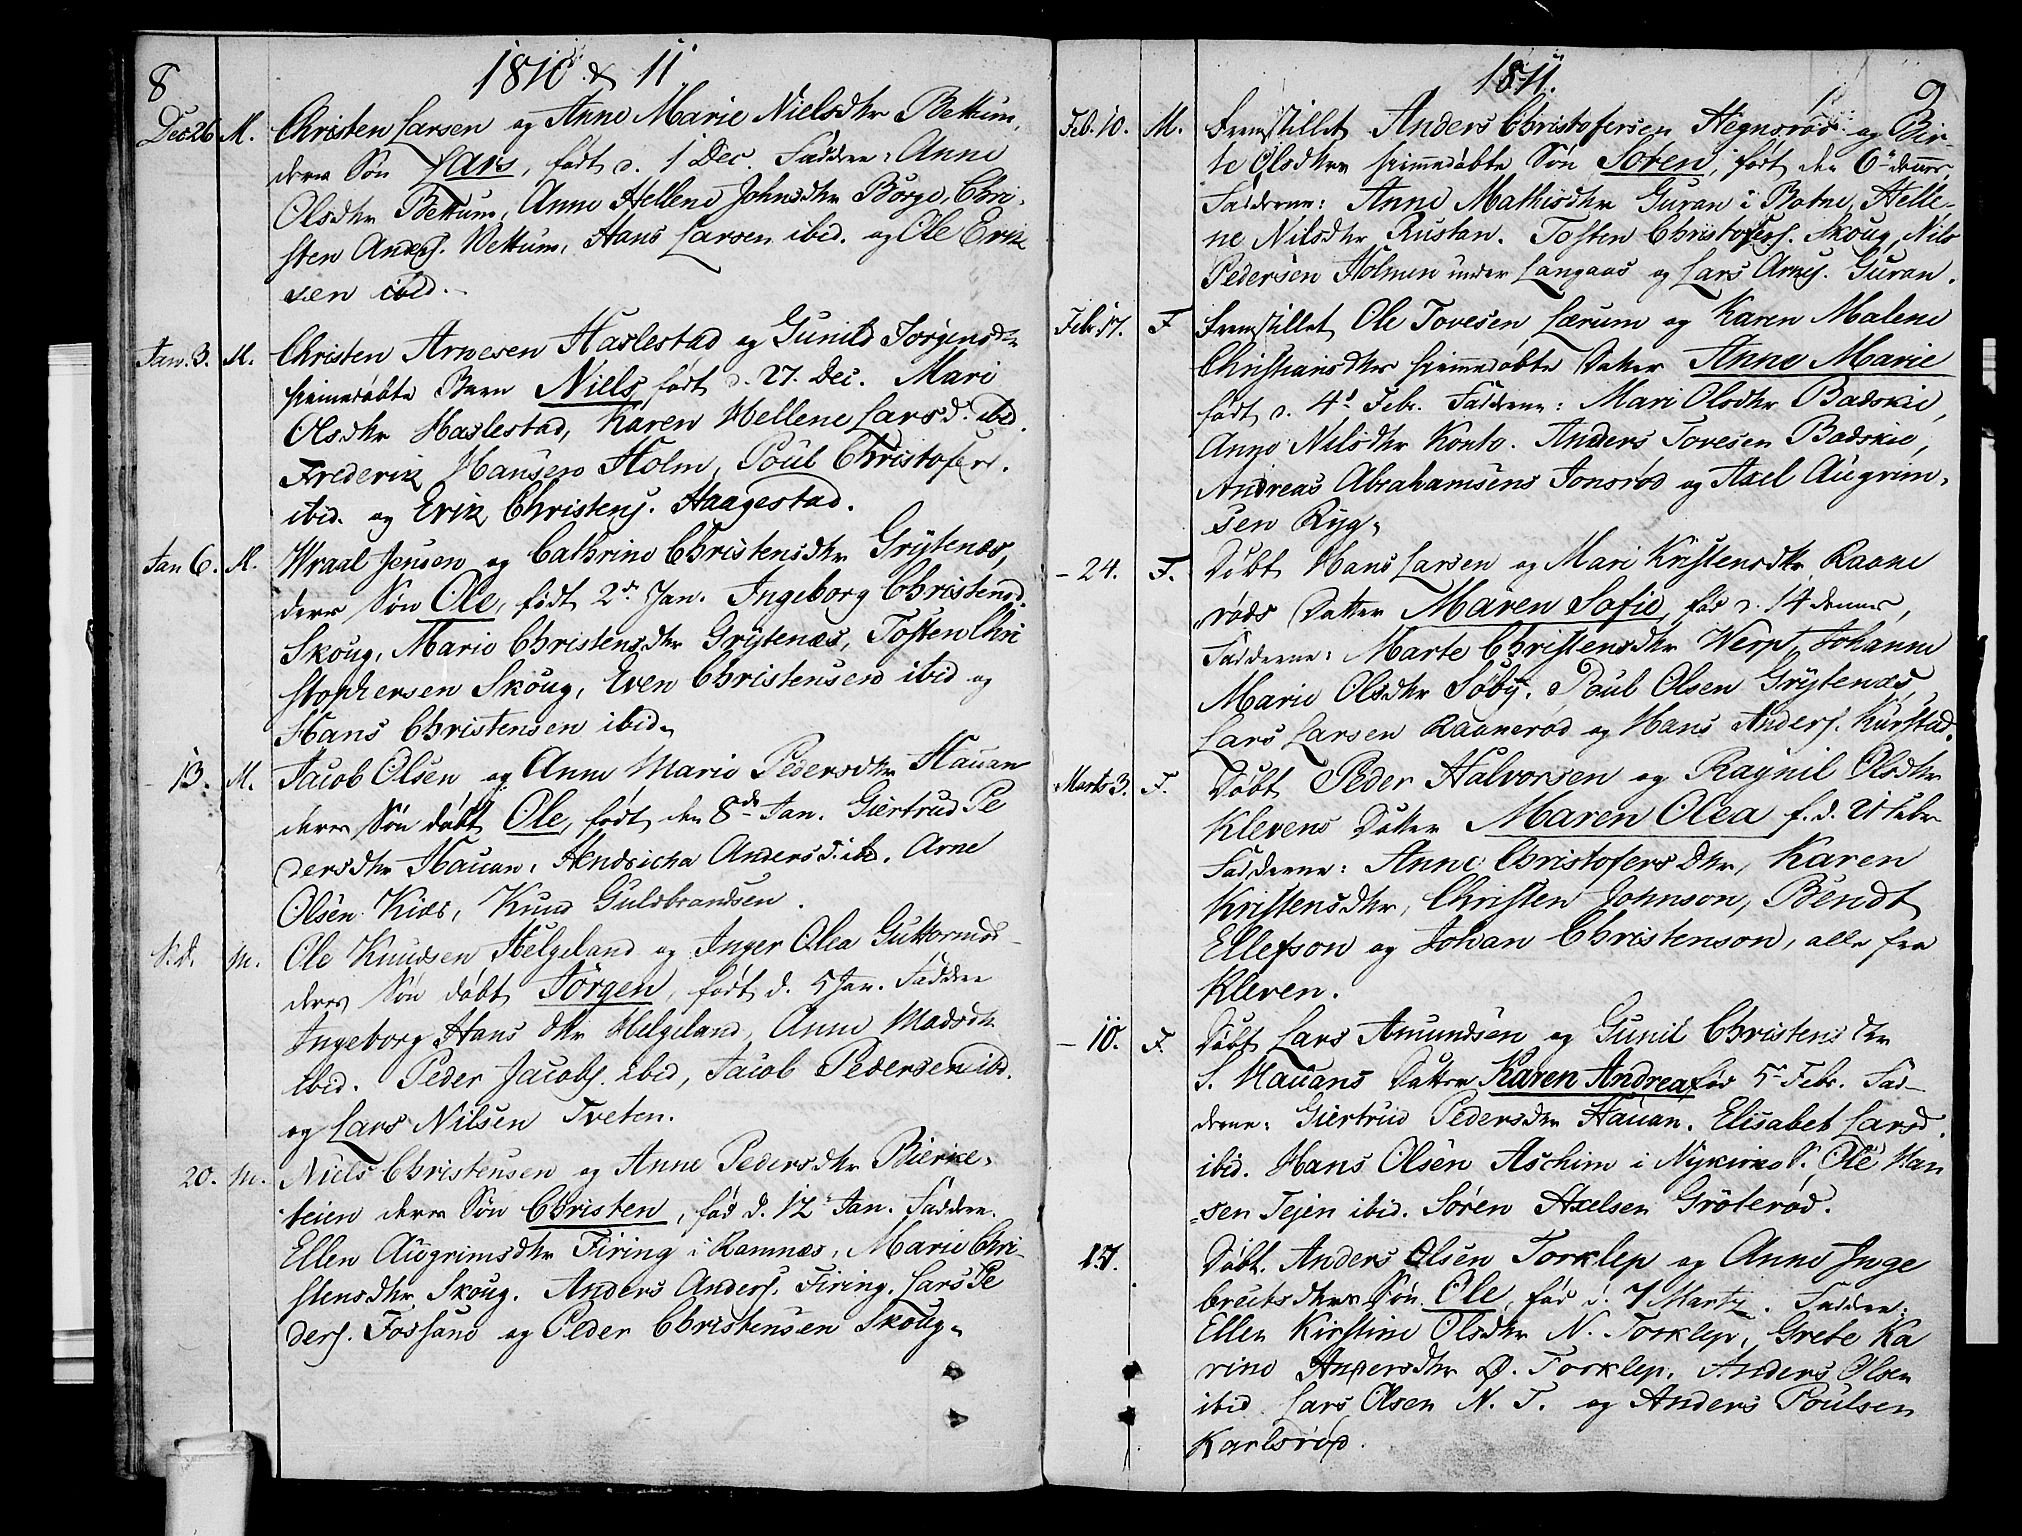 8
1810 & 11
Dec 26 M. Christen Larsen og Anne Marie Nielsdtr Bettum,
deres Søn Lars, født d. 1 Dec. Faddere: Anne
Olsdtr Bettum, Anne Hellene Johnsdtr Borge, Chri-
sten Anders. Bettum, Hans Larsen ibid. og Ole Erik
sen ibid.
Jan. 3. M. Christen Arnesen Haslestad og Gunild Jørgensdtr
hiemedøbte Barn Niels født d. 27. Dec. Mari
Olsdtr Haslestad, Karen Hellene Larsd. ibid.
Frederik Hansen Holm, Poul Christofers.
ibid. og Erik Christens. Haagestad.
Jan 6. M. Wraal Jensen og Cathrine Christensdtr Grytenæs,
deres Søn Ole, født 2d. Jan. Ingeborg Christensd.
Skoug, Marie Christensdtr Grytenæs, Tosten Chri
stophersen Skoug, Even Christensen ibid og
Hans Christensen ibid.
- 13. M. Jacob Olsen og Anne Marie Pedersdtr Hauan
deres Søn døbt Ole, født den 8de Jan. Giertrud Pe
dersdtr Hauan, Hendricha Andersd. ibid. Arne
Olsen Kiær, Knud Guldbrandsen.
S.d. M. Ole Knudsen Helgeland og Inger Olea Guttormsd
deres Søn døbt Jørgen, født d. 5 Jan. Faddere
Ingeborg Hansdtr Helgeland, Anne Madsdtr
ibid. Peder Jacobs. ibid, Jacob Pedersen ibid.
og Lars Nilsen Tveten.
20. M. Niels Christensen og Anne Pedersdtr Bierke-
teien deres Søn Christen, fød d. 12 Jan. Faddere.
Ellen Augrimsdtr Firing i Ramnæs, Marie Chri-
stensdtr Skoug. Anders Anders. Firing. Lars Pe
ders. Fossane og Peder Christensen Skoug.
1811.
9
Feb. 10. M. Fremstillet Anders Christofersen Hegnsrød og Bir-
te Olsdtrs hiemmedøbte Søn Søren, født den 6te dennes,
Fadderne: Anne Mathisdtr Guran i Botne, Helle-
ne Nilsdtr Rustan. Tosten Christofers. Skoug, Nils
Pedersen Holmen under Langaas og Lars Arnes. Guran.
Febr. 17. F Fremstillet Ole Tovesen Lærum og Karen Malene
Christiansdtrs hiemmedøbte Datter Anne Marie
født d. 4d Febr. Fadderne: Mari Olsdtr Badskie,
Anne Nilsdtr Konto. Anders Tovesen Badskie,
Andreas Abrahamsens Jonsrød og Axel Augrim-
sen Ryg.
- 24. F. Døbt Hans Larsen og Mari Kristensdtr Raane
røds Datter Maren Sofie, fød d. 14 dennes,
Fadderne: Marte Christensdtr Werp, Johanne
Marie Olsdtr Søby. Poul Olsen Grytenæs,
Lars Larsen Raanerød og Hans Anders. Kurstad.
Marts 3. F. Døbt Peder Halvorsen og Ragnil Olsdtr
Klevens Datter Maren Olea f. d. 21 Febr
Fadderne: Anne Christofersdtr, Karen
Kristensdtr, Christen Johnson, Bendt
Ellefson og Johan Christenson, alle fra
Kleven.
- 10. F. Døbt Lars Amundsen og Gunil Christensdtr
S. Hauans Datter Karen Andrea fød 5 Febr. Fad-
derne: Giertrud Pedersdtr Hauan. Elisabet Larsd.
ibid. Hans Olsen Aschim i Nykirke S. Ole Han
sen Tejen ibid. Søren Axelsen Grøterød.
17. Døbt. Anders Olsen Torklep og Anne Inge
breitsdtrs Søn Ole, fød d. 7 Marts. Faddere:
Ellen Kirstine Olsdtr N. Torklep, Grete Ka
rine Andersdtr Ø. Torklep, Anders Olsen
ibid Lars Olsen N. T. og Anders Poulsen
Karlsrød.